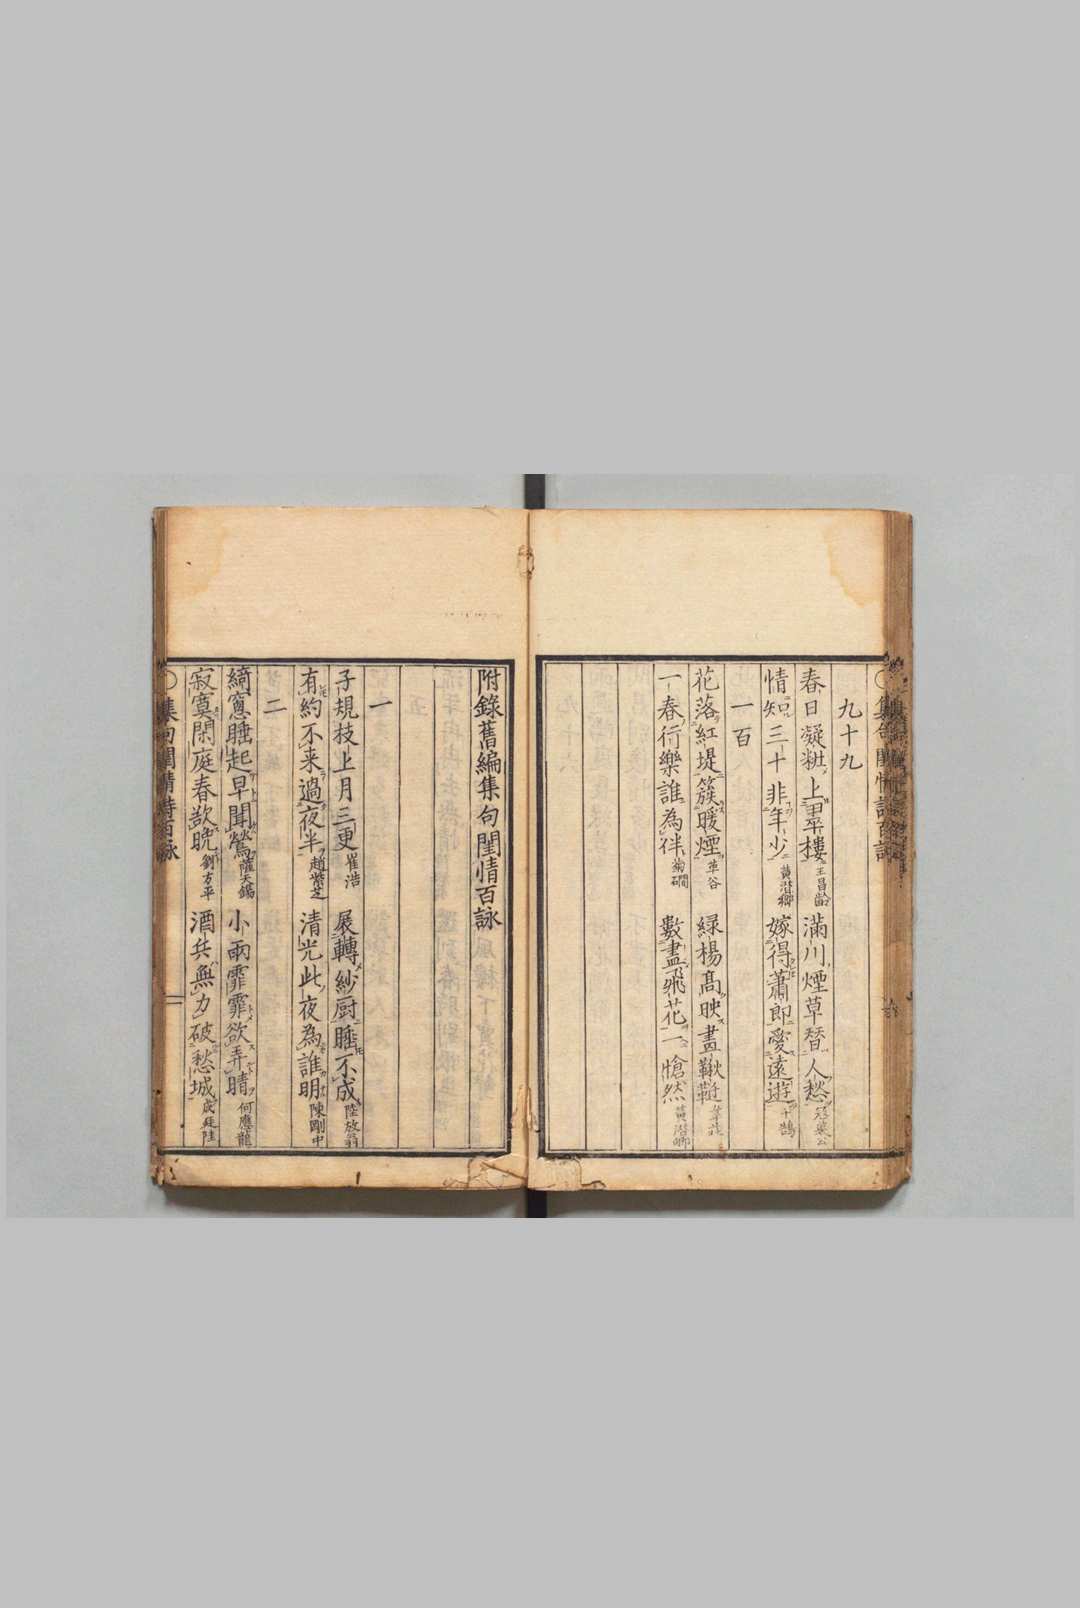 九十九
春日凝粧上翠樓 王昌齡 滿川煙草替人愁 冦萊公
情知三十非年少 黄潜卿 嫁得蕭郎愛遠遊 于鵠
一百
花落紅堤簇暖煙 韋谷 緑楊髙映畫鞦韆 韋莊
一春行樂誰為伴 菊磵 數盡飛花一愴然 黄潜卿
附錄舊編集句閨情百詠
一
子規枝上月三更 崔浩 展轉紗厨睡不成 陸放翁
有約不来過夜半 趙紫芝 清光此夜為誰明 陳剛中
二
綺窻睡起早聞鶯 薩天錫 小雨霏霏欲弄晴 何應龍
寂寞閑庭春欲晩 劉方平 酒兵無力破愁城 成廷陸
集句閨情詩百詠
二